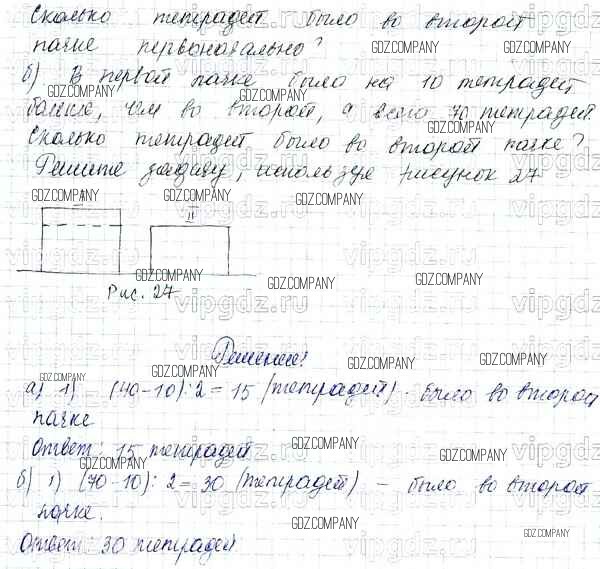 Сколько тетрадей было во второй
пачке первоначально?
б) В первой пачке было на 10 тетрадей
больше, чем во второй, а всего 70 тетрадей.
Сколько тетрадей было во второй пачке?
Решите задачу, используя рисунок 27
I II
Рис. 27
Решение:
а) 1) (40-10):2=15 (тетрадей) - было во второй
пачке
Ответ: 15 тетрадей
б) 1) (70-10):2=30 (тетрадей) - было во второй
пачке.
Ответ: 30 тетрадей
GDZ.COMPANY
vipgdz.ru